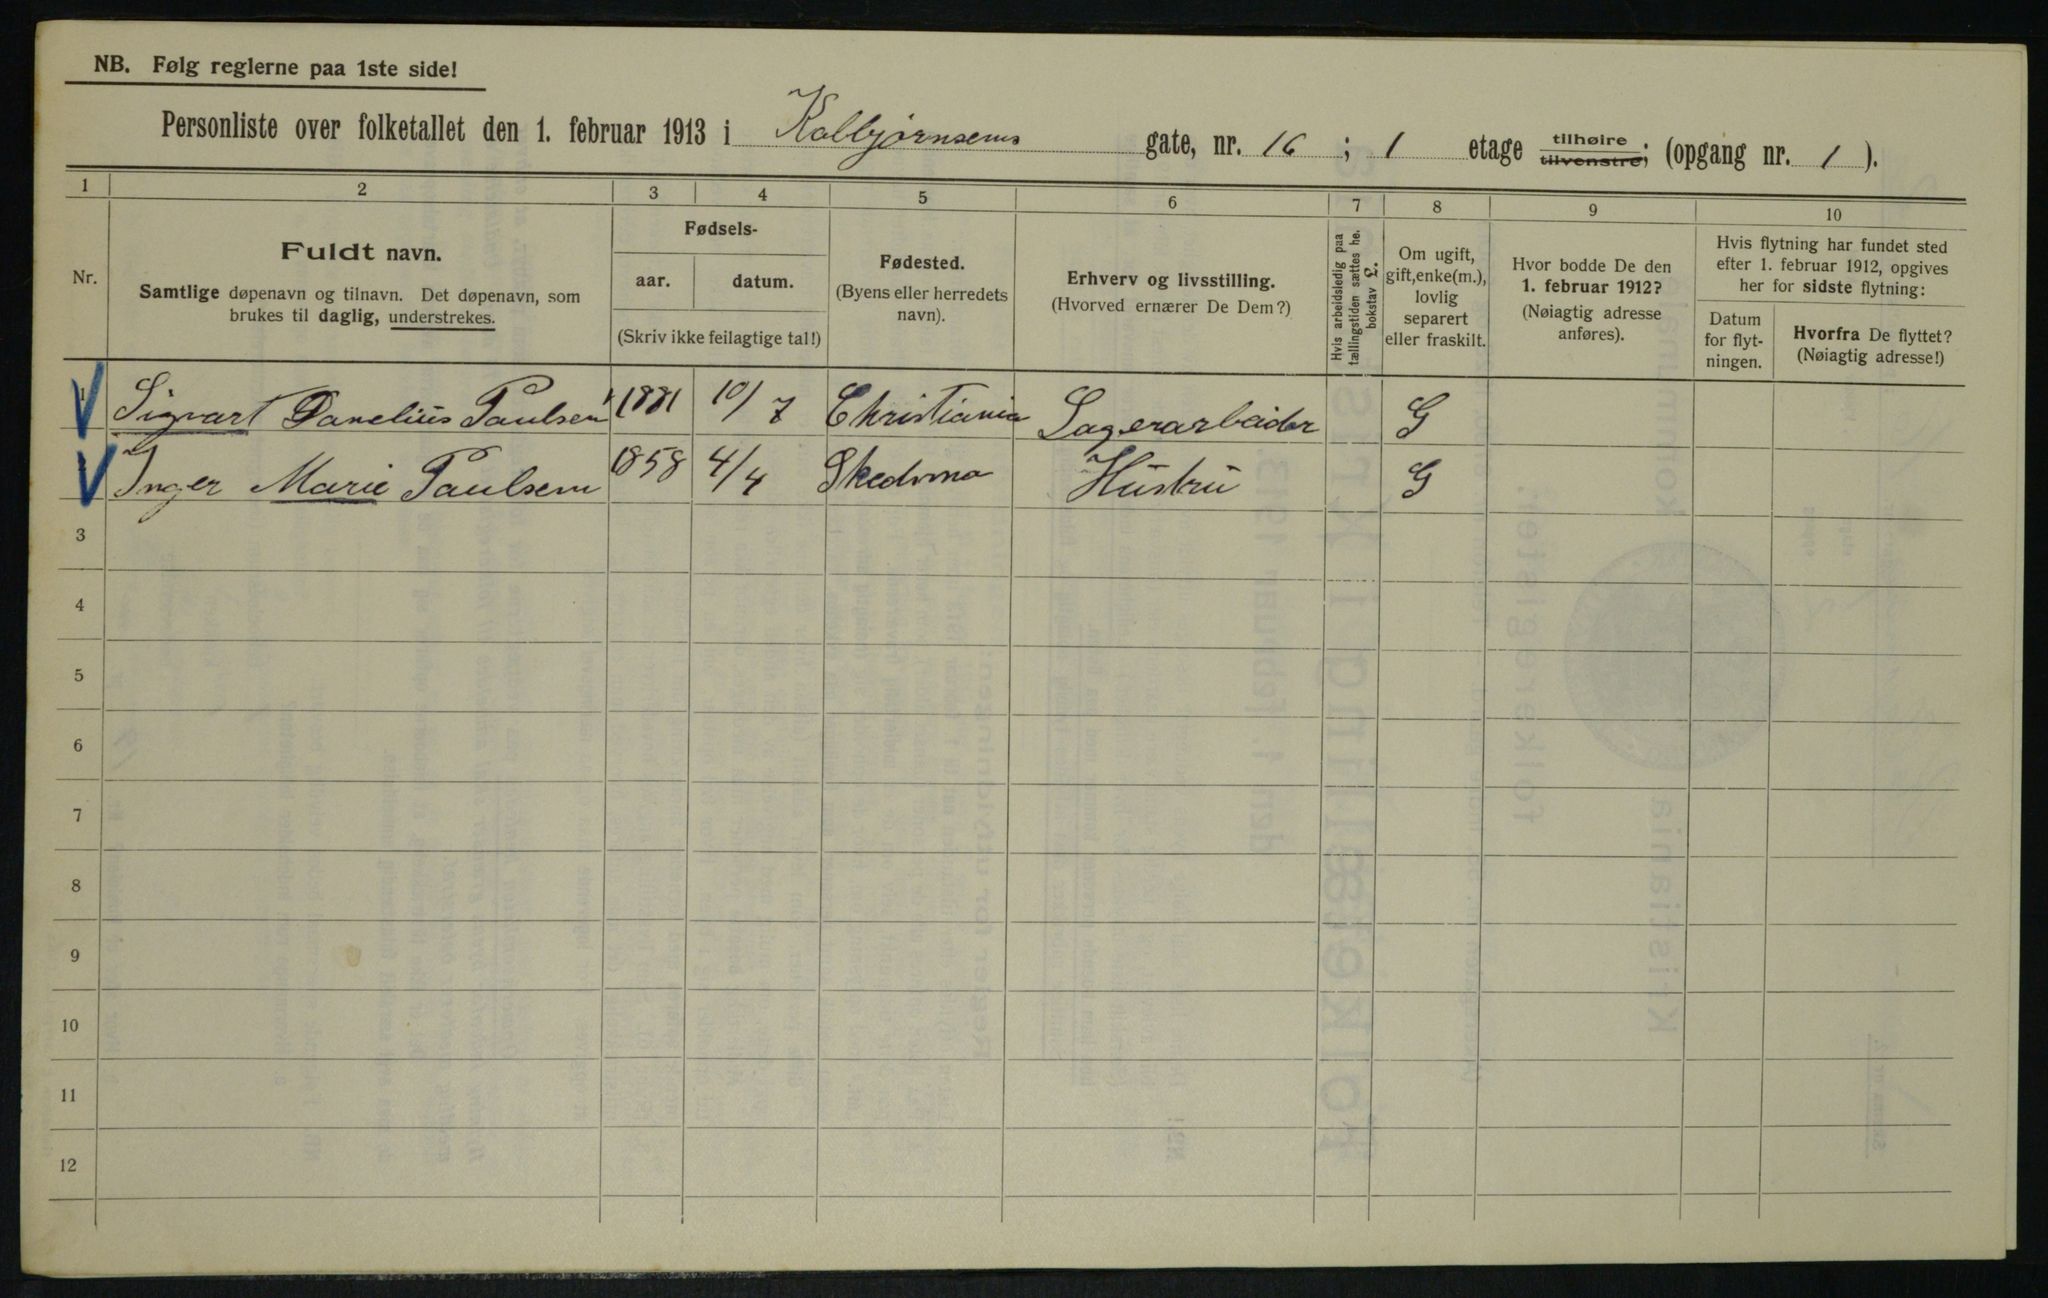 NB. Følg reglerne paa 1ste side!
Personliste over folketallet den 1. februar 1913 i Kolbjørnsens gate, nr. 16 ; 1 etage tilhøire tilvenstre; (opgang nr. 1 ).
1 2 3 4 5 6 7 8 9 10
Nr.
Fuldt navn.
Samtlige døpenavn og tilnavn. Det døpenavn, som
brukes til daglig, understrekes.
Fødsels-
aar. datum.
(Skriv ikke feilagtige tal!)
Fødested.
(Byens eller herredets
navn).
Erhverv og livsstilling.
(Hvorved ernærer De Dem?)
Hvis arbeidsledig paa
tællingstiden sættes he.
bokstav L.
Om ugift,
gift, enke(m.),
lovlig
separert
eller fraskilt.
Hvor bodde De den
1. februar 1912?
(Nøiagtig adresse
anføres).
Hvis flytning har fundet sted
efter 1. februar 1912, opgives
her for sidste flytning:
Datum
for flyt-
ningen.
Hvorfra De flyttet?
(Nøiagtig adresse!)
1 Sigvart Danelius Paulsen 1881 10/7 Christiania Lagerarbeider G
Inger Marie Paulsen 1858 4/4 Skedsmo Hustru G
3
4
5
6
7
8
9
10
11
12